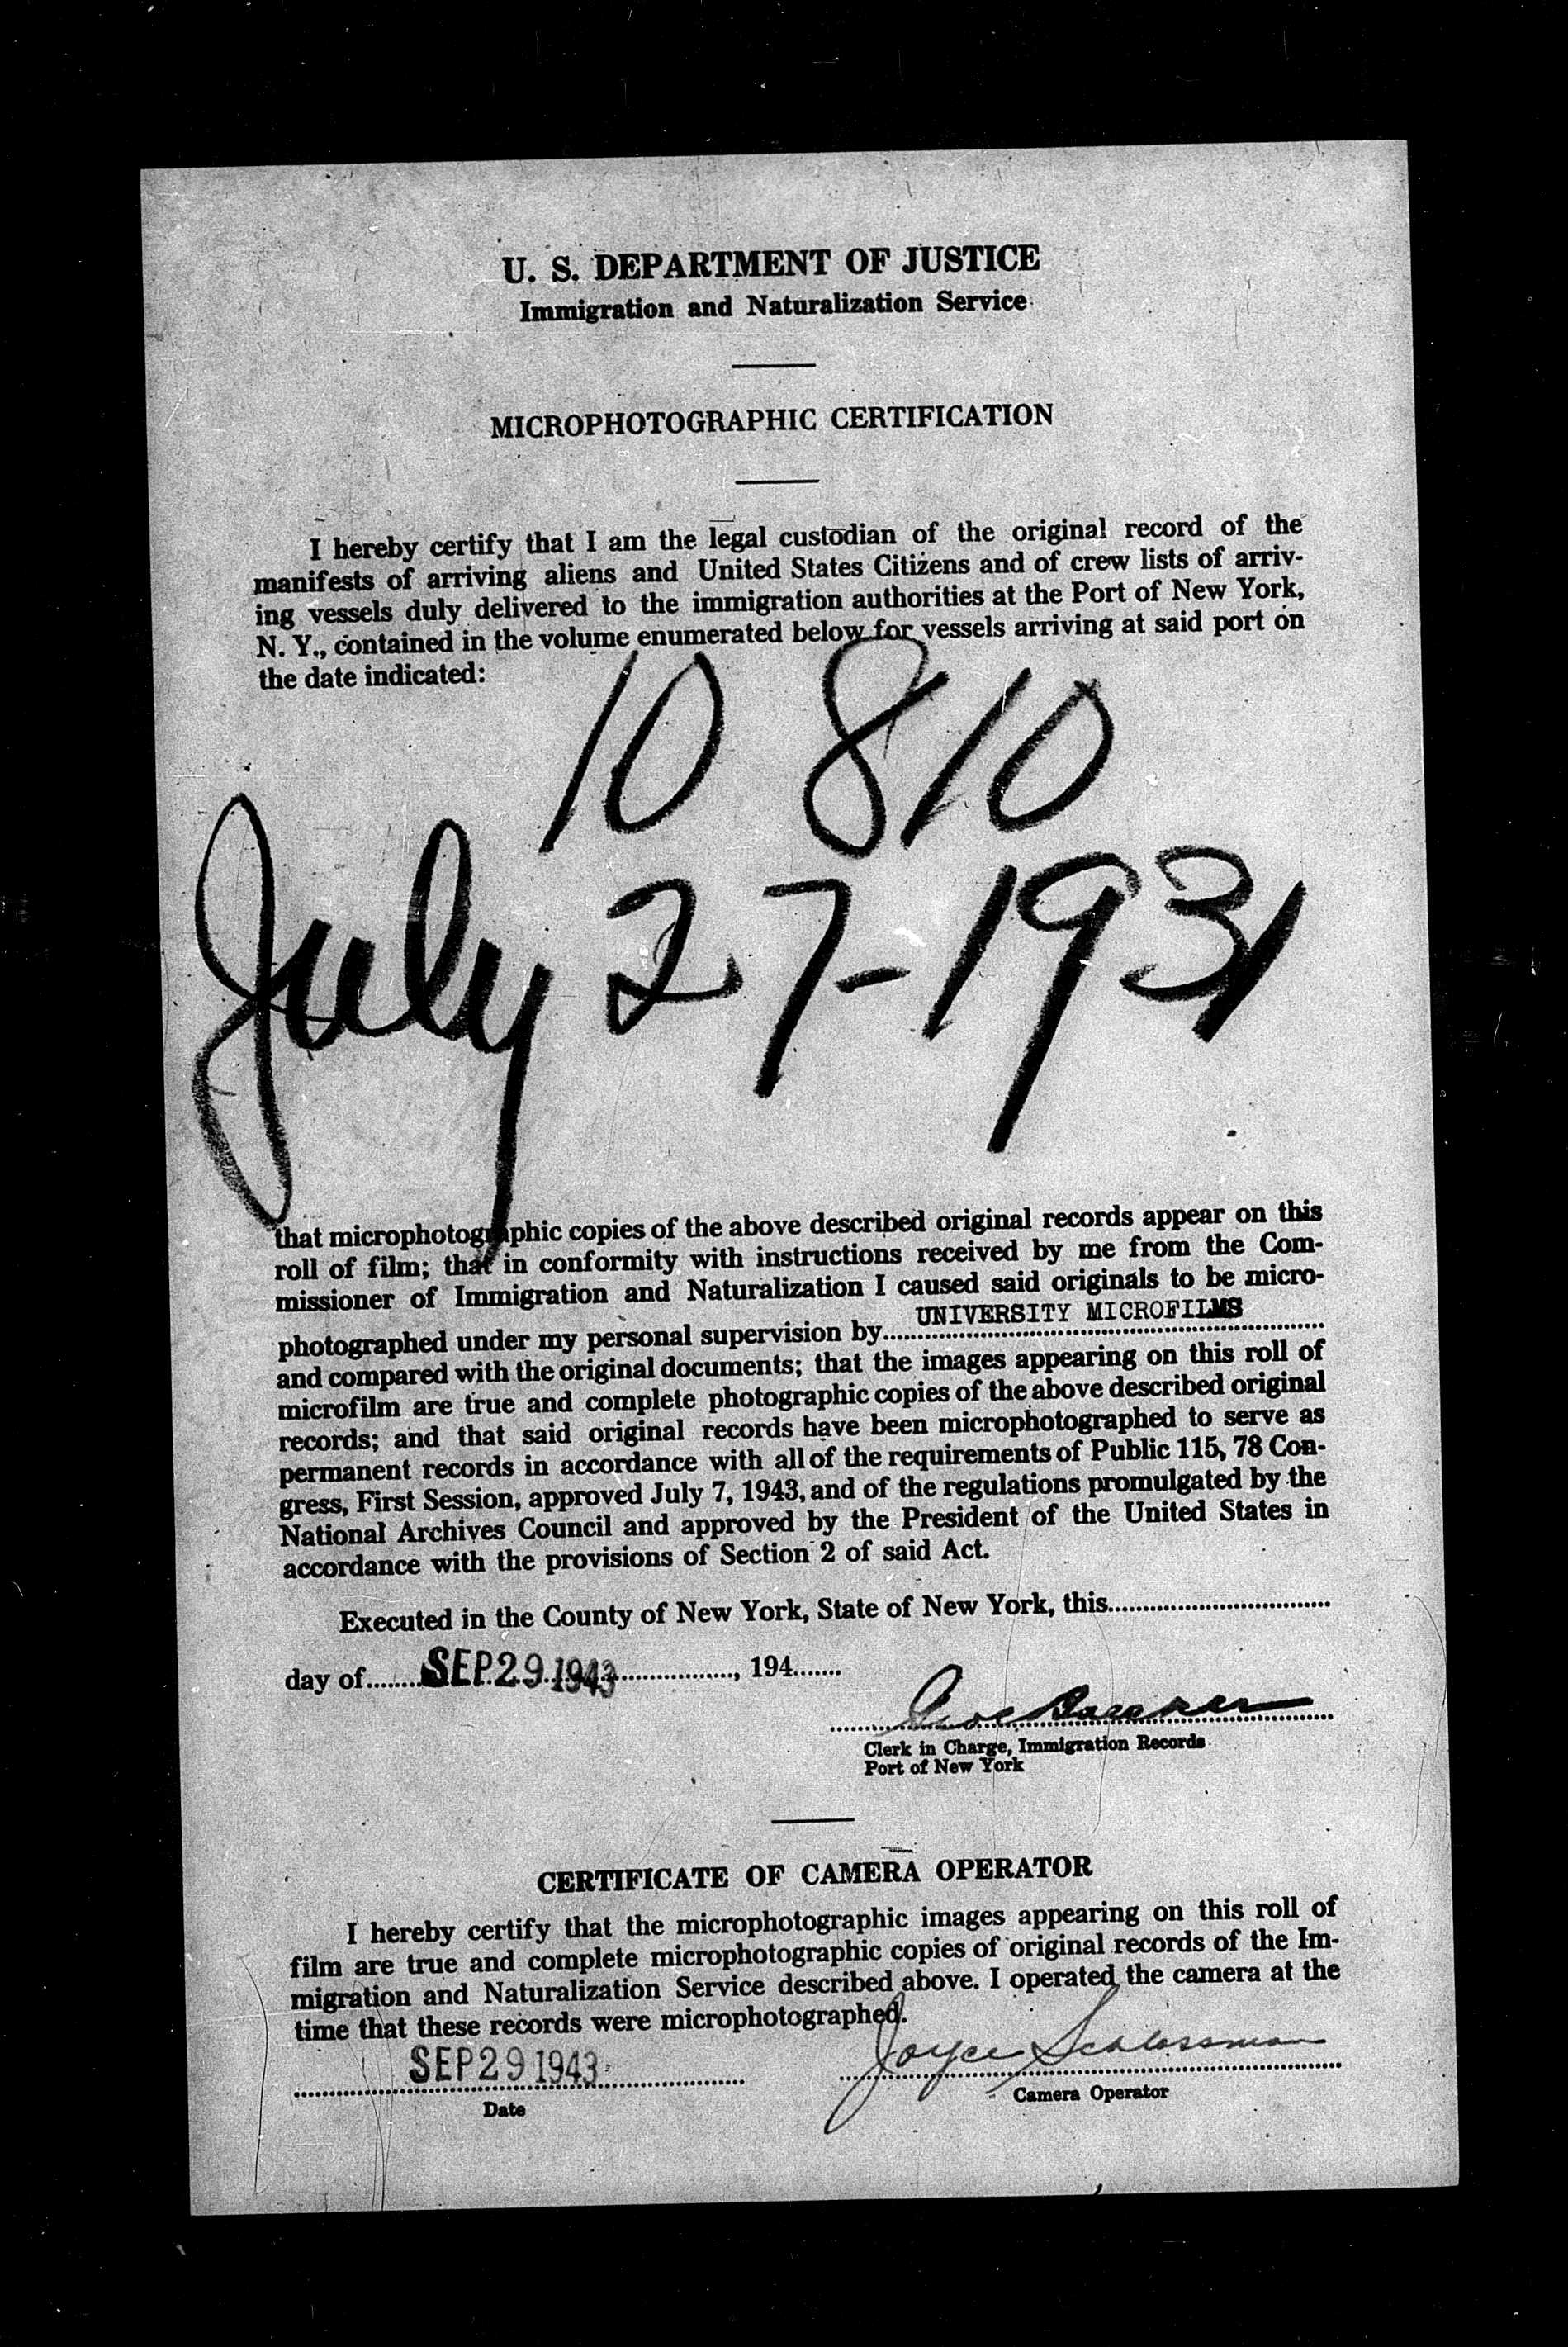 U. S. DEPARTMENT OF JUSTICE
Immigration and Naturalization Service
MICROPHOTOGRAPHIC CERTIFICATION
I hereby certify that I am the legal custodian of the original record of the
manifests of arriving aliens and United States Citizens and of crew lists of arriv-
ing vessels duly delivered to the immigration authorities at the Port of New York,
N. Y., contained in the volume enumerated below for vessels arriving at said port on
the date indicated:
10 810
July 27-1931
that microphotographic copies of the above described original records appear on this
roll of film; that in conformity with instructions received by me from the Com-
missioner of Immigration and Naturalization I caused said originals to be micro-
photographed under my personal supervision by UNIVERSITY MICROFILMS
and compared with the original documents; that the images appearing on this roll of
microfilm are true and complete photographic copies of the above described original
records; and that said original records have been microphotographed to serve as
permanent records in accordance with all of the requirements of Public 115, 78 Con-
gress, First Session, approved July 7, 1943, and of the regulations promulgated by the
National Archives Council and approved by the President of the United States in
accordance with the provisions of Section 2 of said Act.
Executed in the County of New York, State of New York, this
day of SEP 29 1943, 194
Clerk in Charge, Immigration Records
Port of New York
CERTIFICATE OF CAMERA OPERATOR
I hereby certify that the microphotographic images appearing on this roll of
film are true and complete microphotographic copies of original records of the Im-
migration and Naturalization Service described above. I operated the camera at the
time that these records were microphotographed.
SEP 29 1943 Joyce Schlossman
Date Camera Operator